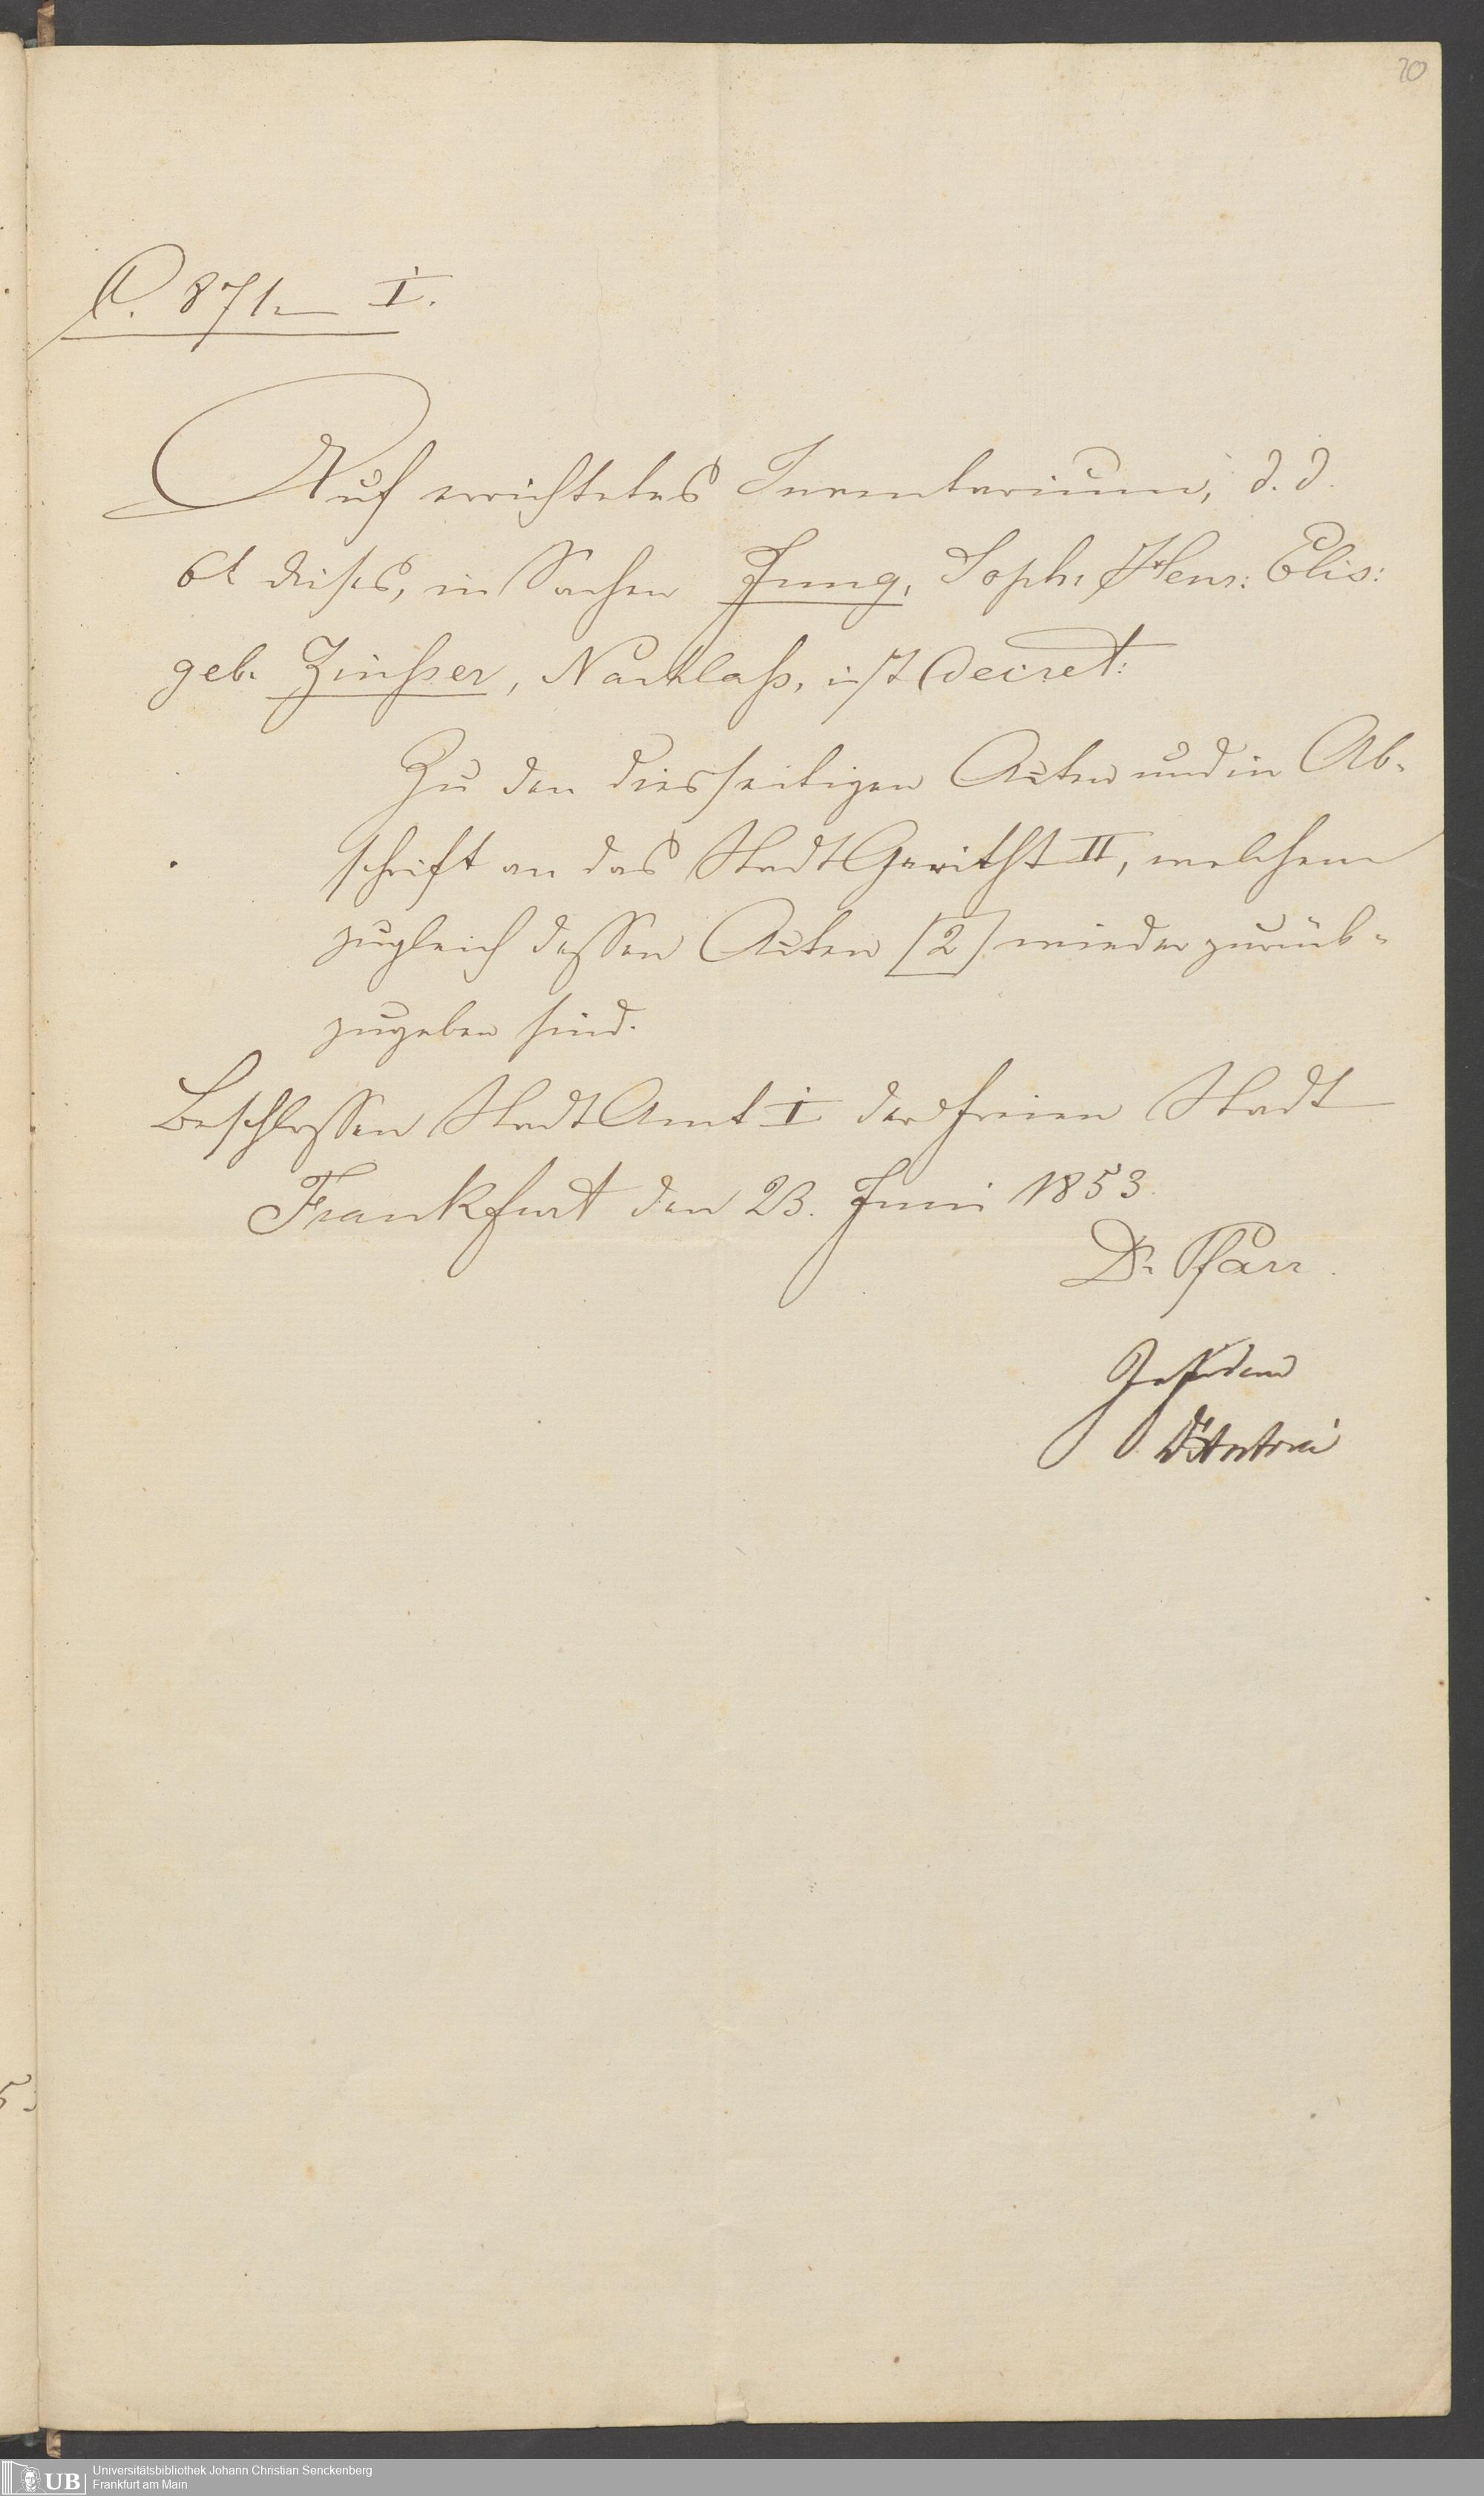 20
C. 871 I.
Auf errichtetes Inventarium, d. d.
et dieses, in Sachen Jung, Soph. Henr: Elis:
geb. Zinßer, Nachlaß, ist Decret:
Zu den diesseitigen Acten und in Ab-
schrift an das Stadt Gericht II, welchem
zugleich dessen Acten [2] wieder zurück-
zugeben sind.
Beschlossen Stadt Amt I der freien Stadt
Frankfurt den 23. Juni 1853.
Dr. Pfarr.
In fidem
Dr Antoni
UB
Universitätsbibliothek Johann Christian Senckenberg
Frankfurt am Main